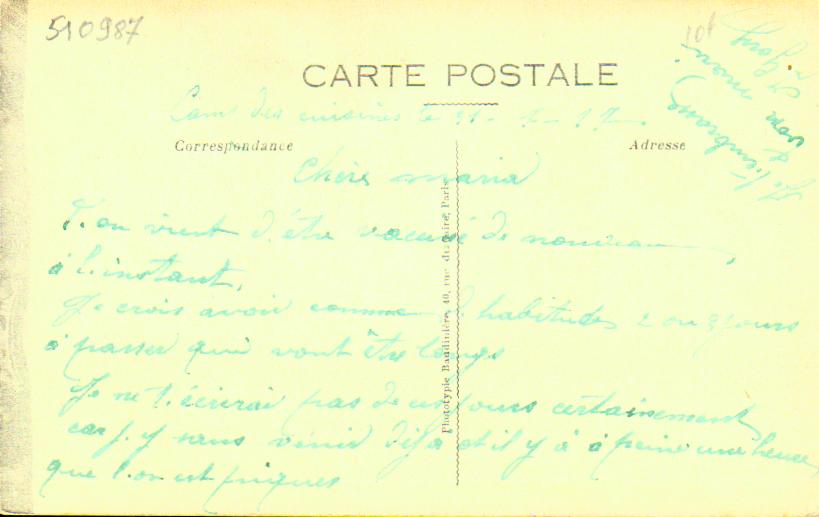 510987
CARTE POSTALE
Camp des cuisines le 21-1-17.
Correspondance
Adresse
Chère maria
T. on vient d.être vacciné de nouveau,
à l.instant.
Je crois avoir comme d habitudes 2 ou 3 jours
à passer qui vont être longs
Je ne t.écrirai pas de ces jours certainement
car j. y sans venir déja et il y à à peine une heure
que l.on est piqués
Phototypie Baudinière, 40, rue du Caire, Paris